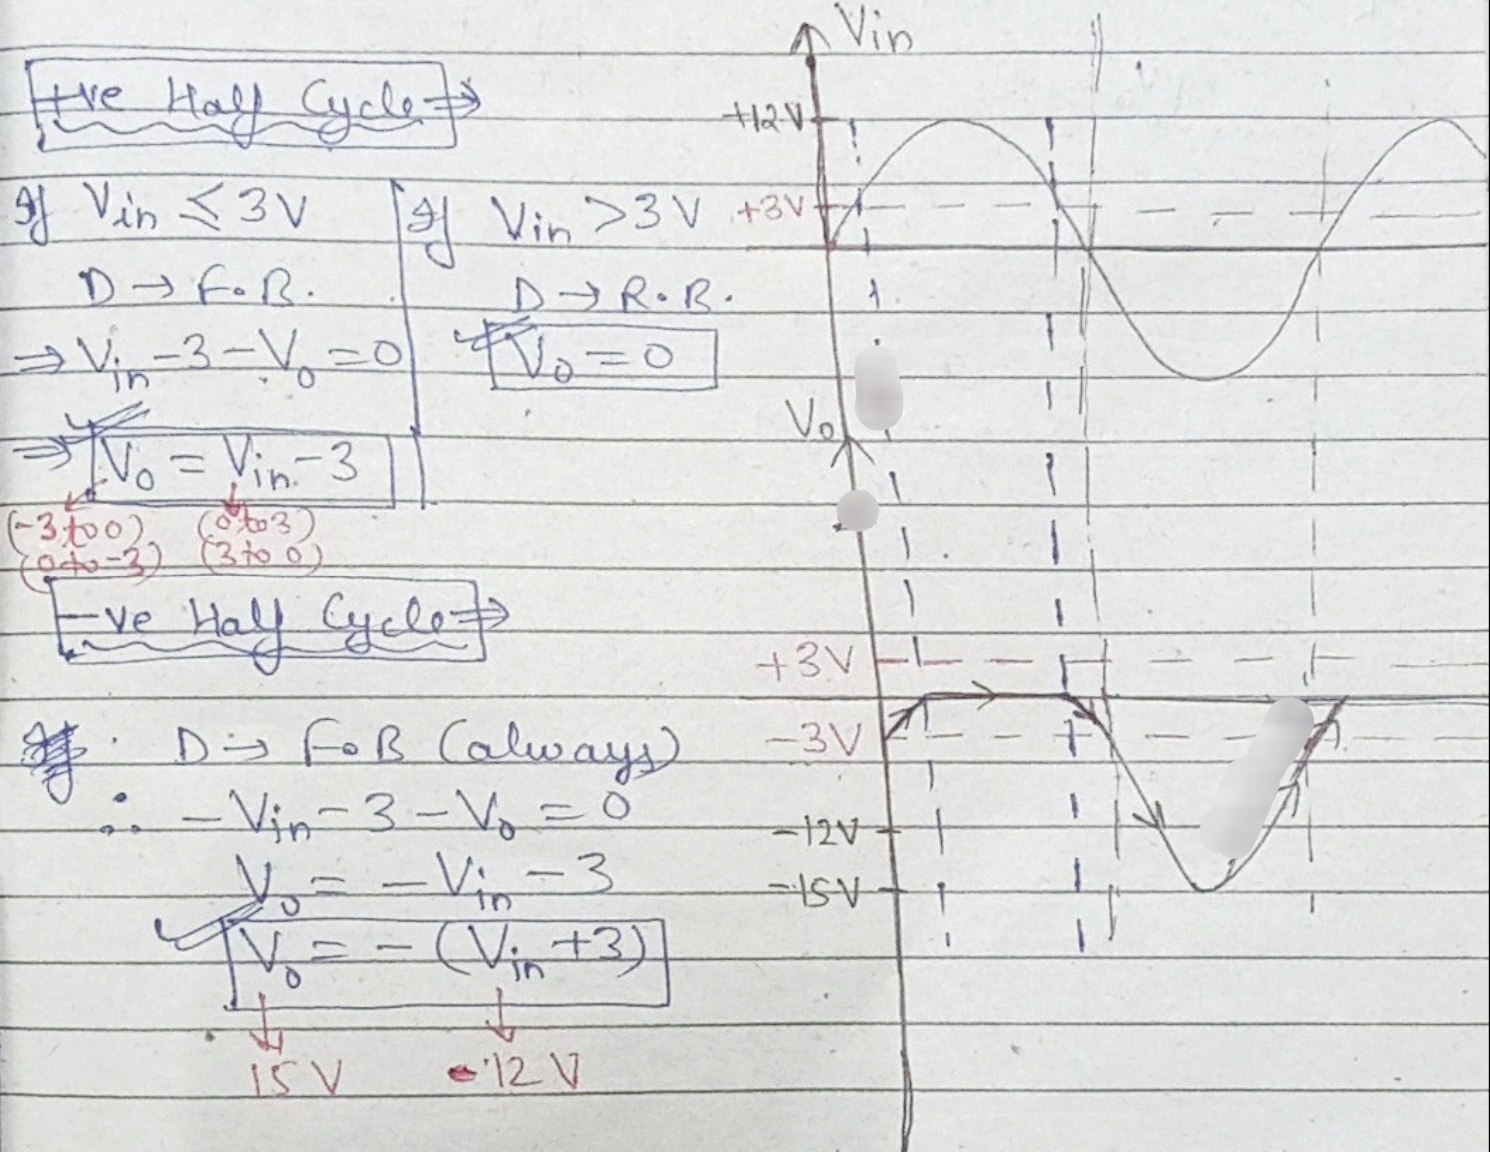 +ve Half Cycle ⇒
If Vin ≤ 3V
D → F.B.
⇒ Vin - 3 - Vo = 0
⇒ Vo = Vin - 3
(-3 to 0) (0 to 3)
(0 to -3) (3 to 0)
If Vin > 3V
D → R.B.
Vo = 0
-ve Half Cycle ⇒
D → F.B (always)
∴ - Vin - 3 - Vo = 0
Vo = - Vin - 3
Vo = - (Vin + 3)
15 V 12 V
Vin
+12V
+3V
Vo
+3V
-3V
-12V
-15V